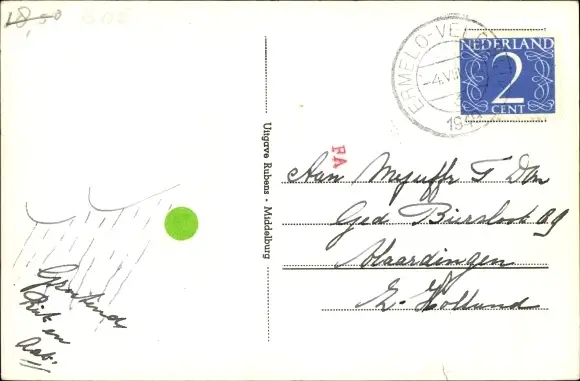 18,50
ERMELO-VEL
-4.VII
194
NEDERLAND
2
CENT
FA
Uitgave Rubens • Middelburg
Aan Mejuffr T Don
Ged Biersloot 89
Vlaardingen
Z-Holland
Groetend
Rik en